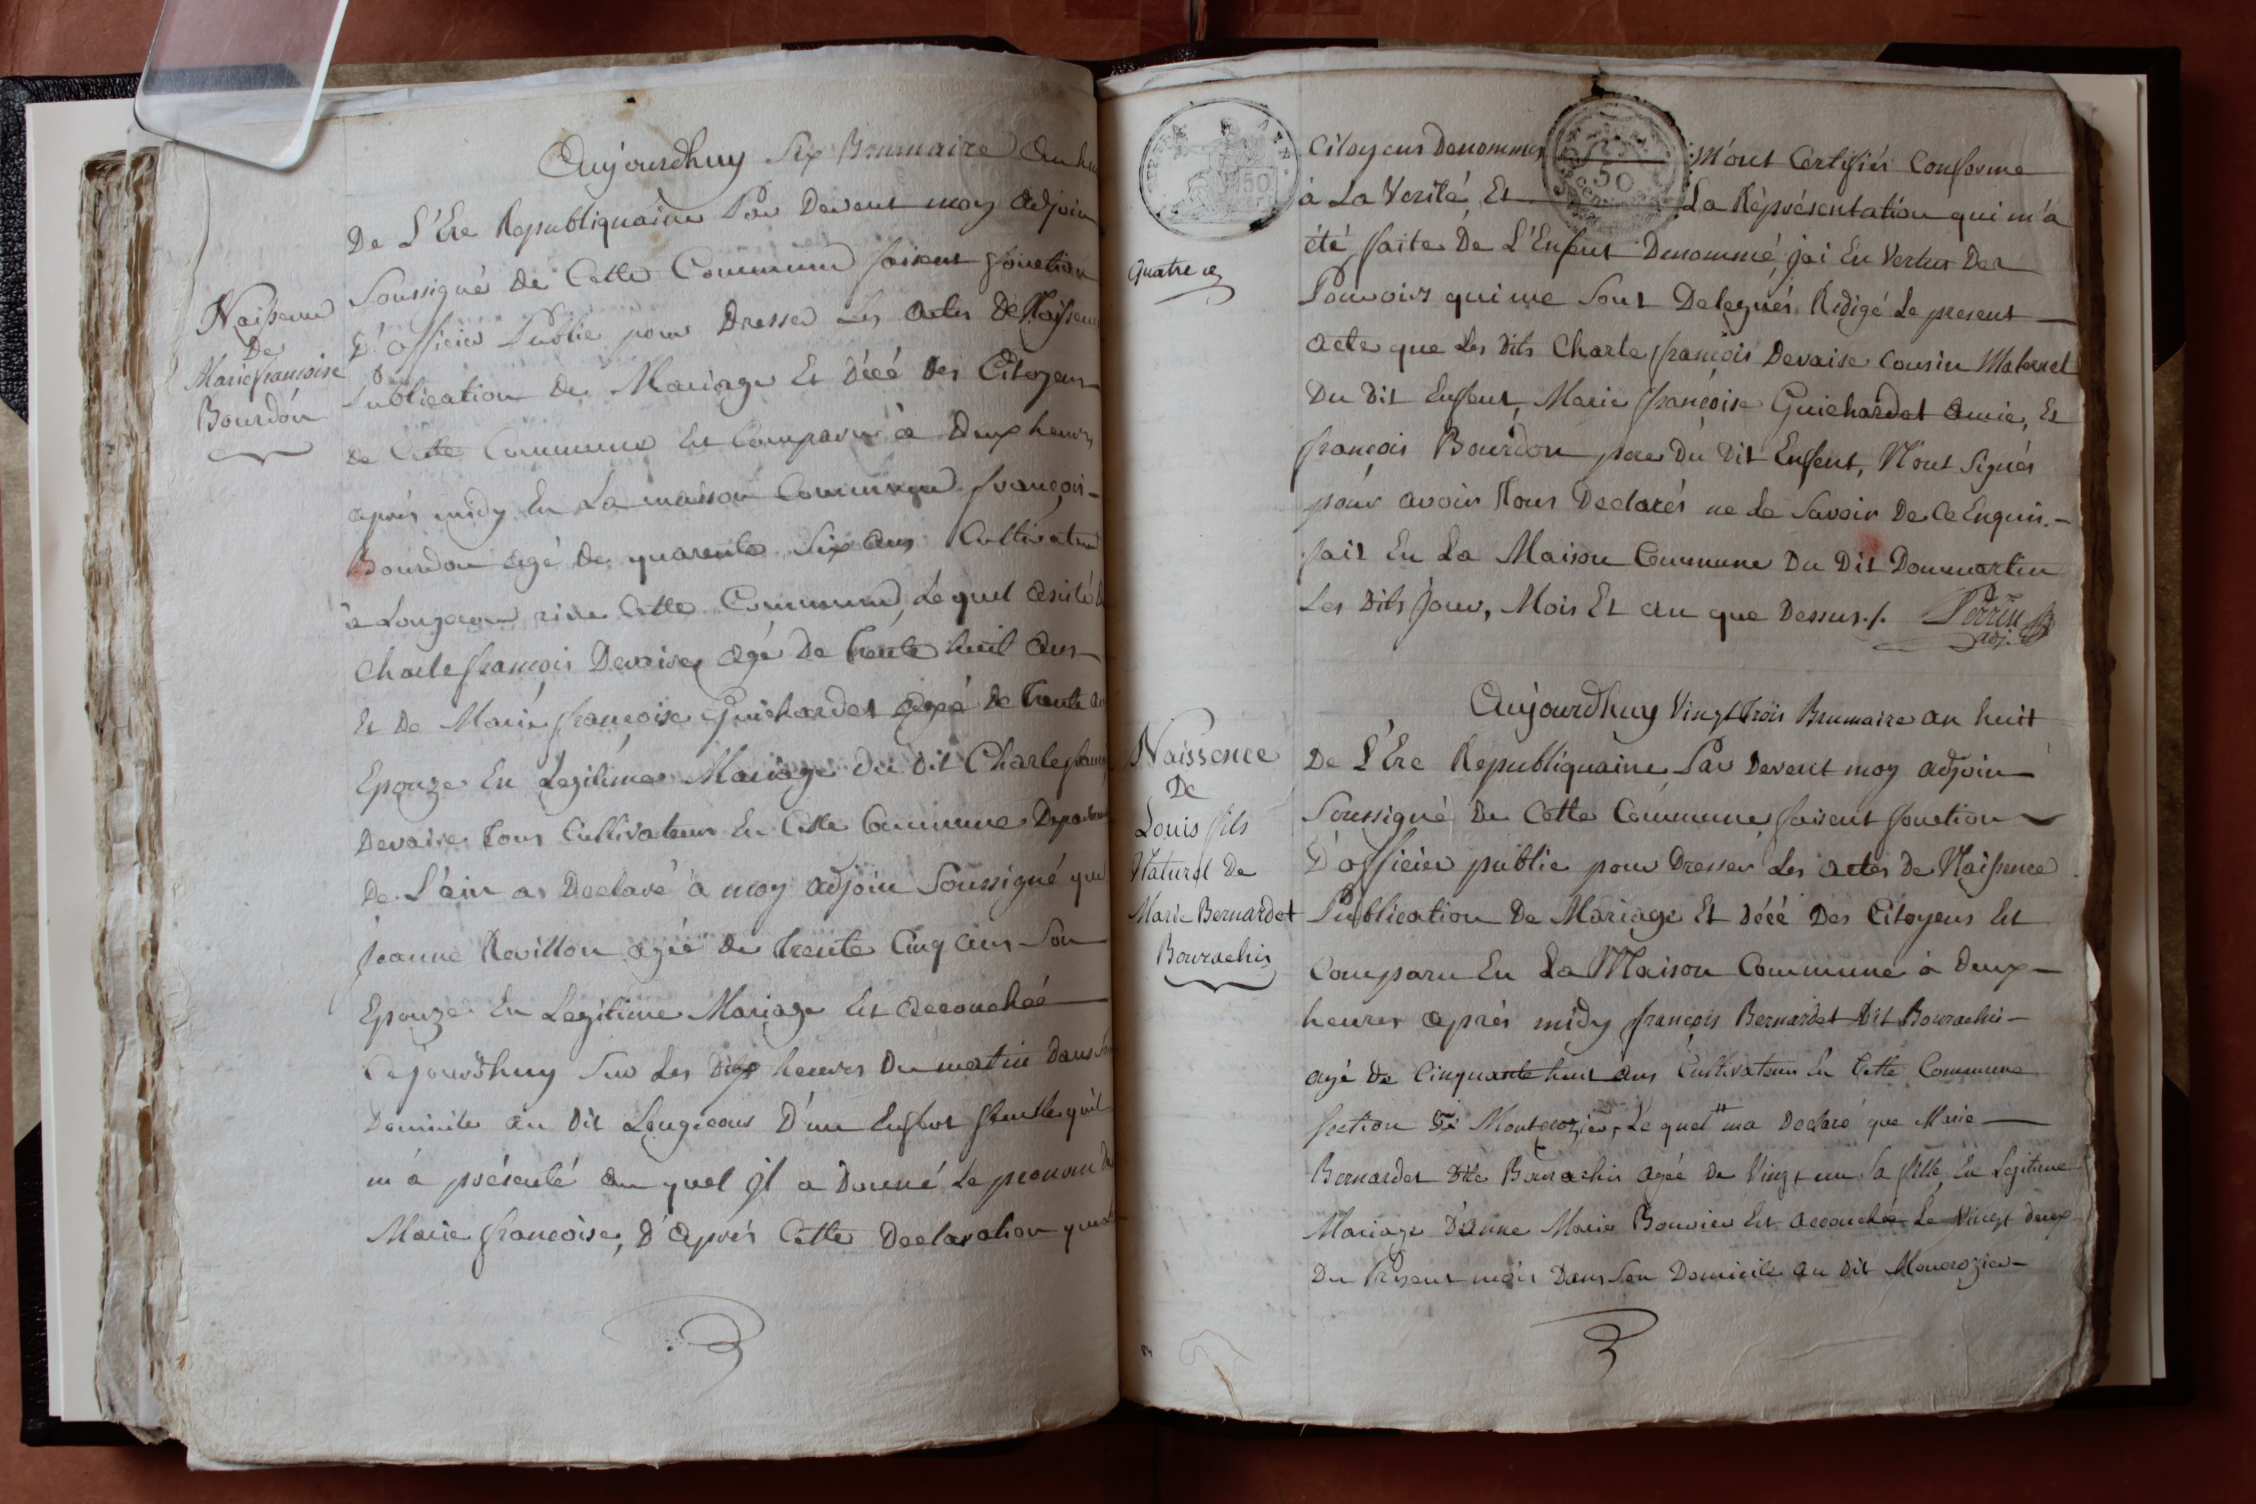 Naissenu
De
Marie françoise
Bourdon
Aujourdhuy Six Brumaire an hu
De L'Ere Republiquaine Par Devent moy adjoin
Soussigné de Cette Commune faisent fonction
D'officier Public pour Dresser Les actes De Naissen
Publication de Mariage Et Décé des Citoyens
de Cette Commune Est Comparu à Deux heures
après midy En La maison Commune françois
Bourdon agé de quarente Six ans Cultivateur
à cette Commune, Lequel
Charle françois Devaise agé De trente huit ans
Et De Marie françoise Guichardet agée de trente an
Epouze En Legitime Mariage du dit Charle fran
Devaise tous Cultivateurs En Cette Commune Depart
De L'ain a Declaré a moy adjoin Soussigné que
Jeanne Revillon agée de trente Cinq ans Son
Epouze En Legitime Mariage Est accouchée
Cejourdhuy Sur Les Dix heures Du matin Dans
Domicile au Dit D'un Enfent femelle quil
m'a présenté au quel Jl a Donné Le prenom De
Marie françoise, D'Après Cette Declaration que
50
Quatre
Citoyens Denommes M'ont Certifiés Conforme
à La Verité, Et La Réprésentation qui m'a
été faite De L'Enfent Denommé, jai En Vertus Des
Pouvoirs qui me Sont Delegués, Redigé Le present
acte que Les Dits Charle françois Devaise Cousin Maternel
Du Dit Enfent, Marie françoise Guichardet Amie, Et
françois Bourdon pere Du Dit Enfent, N'ont Signés
pour avoir Tous Declarés ne Le Savoir De Ce Enquis.
fait En La Maison Commune Du Dit Dommartin
Les Dits Jour, Mois Et an que Dessus./. Perrin
adj.
Naissence
De
Louis fils
Naturel de
Marie Bernardet
Bourachis
Aujourdhuy Vingt Trois Brumaire an huit
De L'Ere Republiquaine Par Devent moy adjoin
Soussigné De Cette Commune faisent fonction
D'officier public pour Dresser Les actes de Naissence
Publication De Mariage Et Décé Des Citoyens Est
Comparu En La Maison Commune à Deux
heures après midy françois Bernardet Dit Bourachis
agé de Cinquante huit ans Cultivateur En Cette Commune
section Lequel ma Declaré que Marie
Bernardet Dite Bourachis agée De Vingt un Sa fille En Legitime
Mariage D'anne Marie Bouvier Est accouchée Le Vingt Deux
Du Present mois Dans Son Domicile au Dit Moncrozier